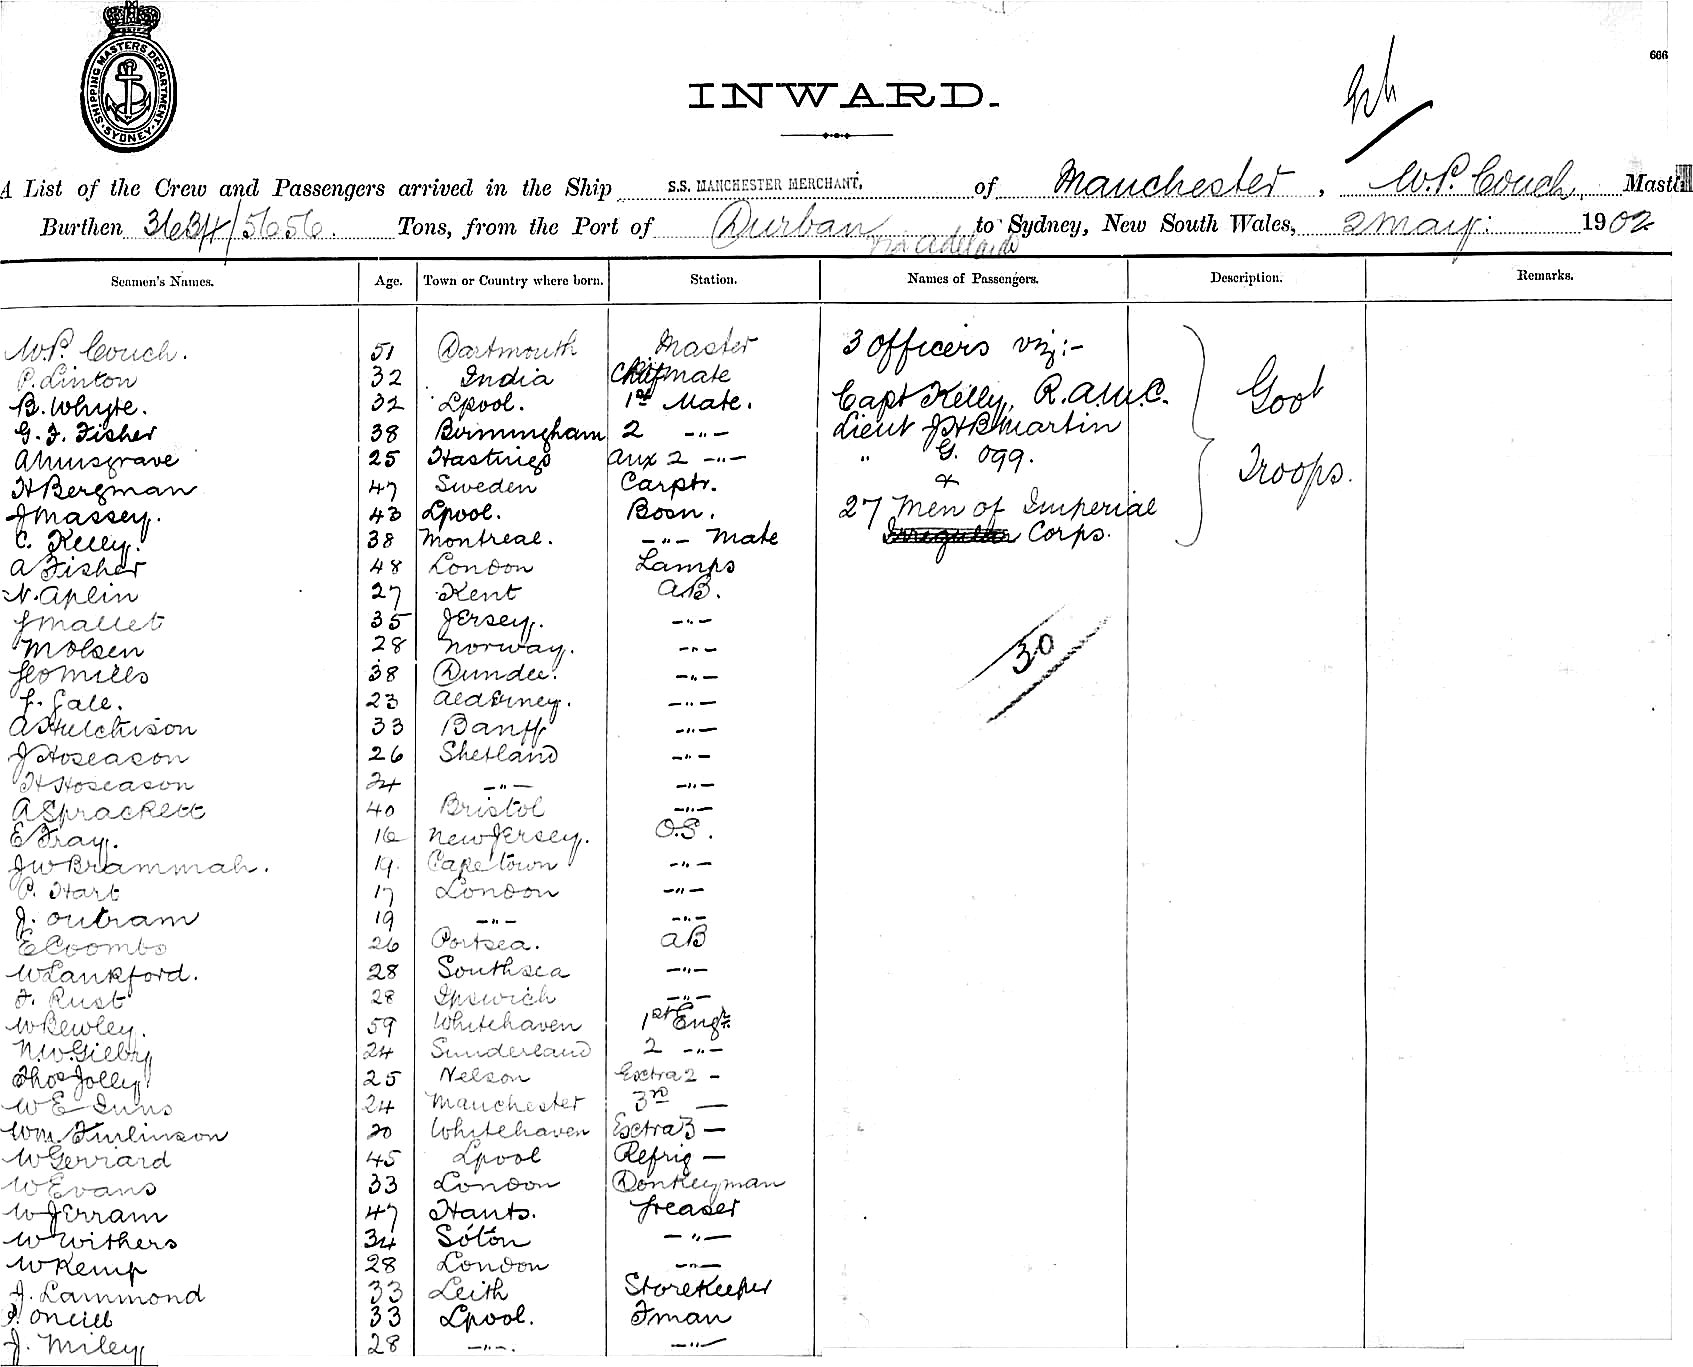 SHIPPING MASTERS DEPARTMENT
SYDNEY
666
INWARD.
A List of the Crew and Passengers arrived in the Ship S.S. MANCHESTER MERCHANT, of Manchester, W.P. Couch, Master
Burthen 3634/5656. Tons, from the Port of Durban to Sydney, New South Wales, 2 May: 1902
via Adelaide
Seamen's Names. Age. Town or Country where born. Station. Names of Passengers. Description. Remarks.
W.P. Couch. 51 Dartmouth Master 3 Officers viz:-
P. Linton 32 India Chief mate
B. Whyte. 32 Lpool. 1st Mate. Capt Kelly, R.A.M.C. Govt
G. F. Fisher 38 Birmingham 2 -"- Lieut J H B Martin
A Musgrave 25 Hastings Aux 2 -"- " G. Ogg.
H Bergman 47 Sweden Carptr. & Troops.
J Massey. 43 Lpool. Bosn. 27 Men of Imperial
C. Kelly. 38 Montreal. -"- Mate Irregular Corps.
A Fisher 48 London Lamps
N. Aplin 27 Kent AB.
J Mallet 35 Jersey. -"-
M Olsen 28 Norway. -"- 30
Geo Mills 38 Dundee. -"-
F. Gale. 23 Alderney. -"-
A Hutchison 33 Banff -"-
J Hoseason 26 Shetland -"-
H Hoseason 24 -"- -"-
A Sprackett 40 Bristol -"-
E Fray. 16 New Jersey. O.S.
J W Brammah. 19. Cape town -"-
P. Hart 17 London -"-
J. Outram 19 -"- -"-
E Coombs 26 Portsea. AB
W Lankford. 28 Southsea -"-
F. Rust 28 Ipswich -"-
W Bewley. 59 Whitehaven 1st Engr.
N.W. Gielby 24 Sunderland 2 -"-
Thos Jolley 25 Nelson Extra 2 -
W E Inns 24 Manchester 3rd —
Wm. Tinlinson 20 Whitehaven Extra 3 —
W Gerrard 45 Lpool Refrig —
W Evans 33 London Donkeyman
W Jerram 47 Hants. Greaser
W Withers 34 Soton -"-
W Kemp 28 London -"-
J. Lammond 33 Leith Storekeeper
J. Oneill 33 Lpool. Fman
J. Miley 28 -"-. -"-